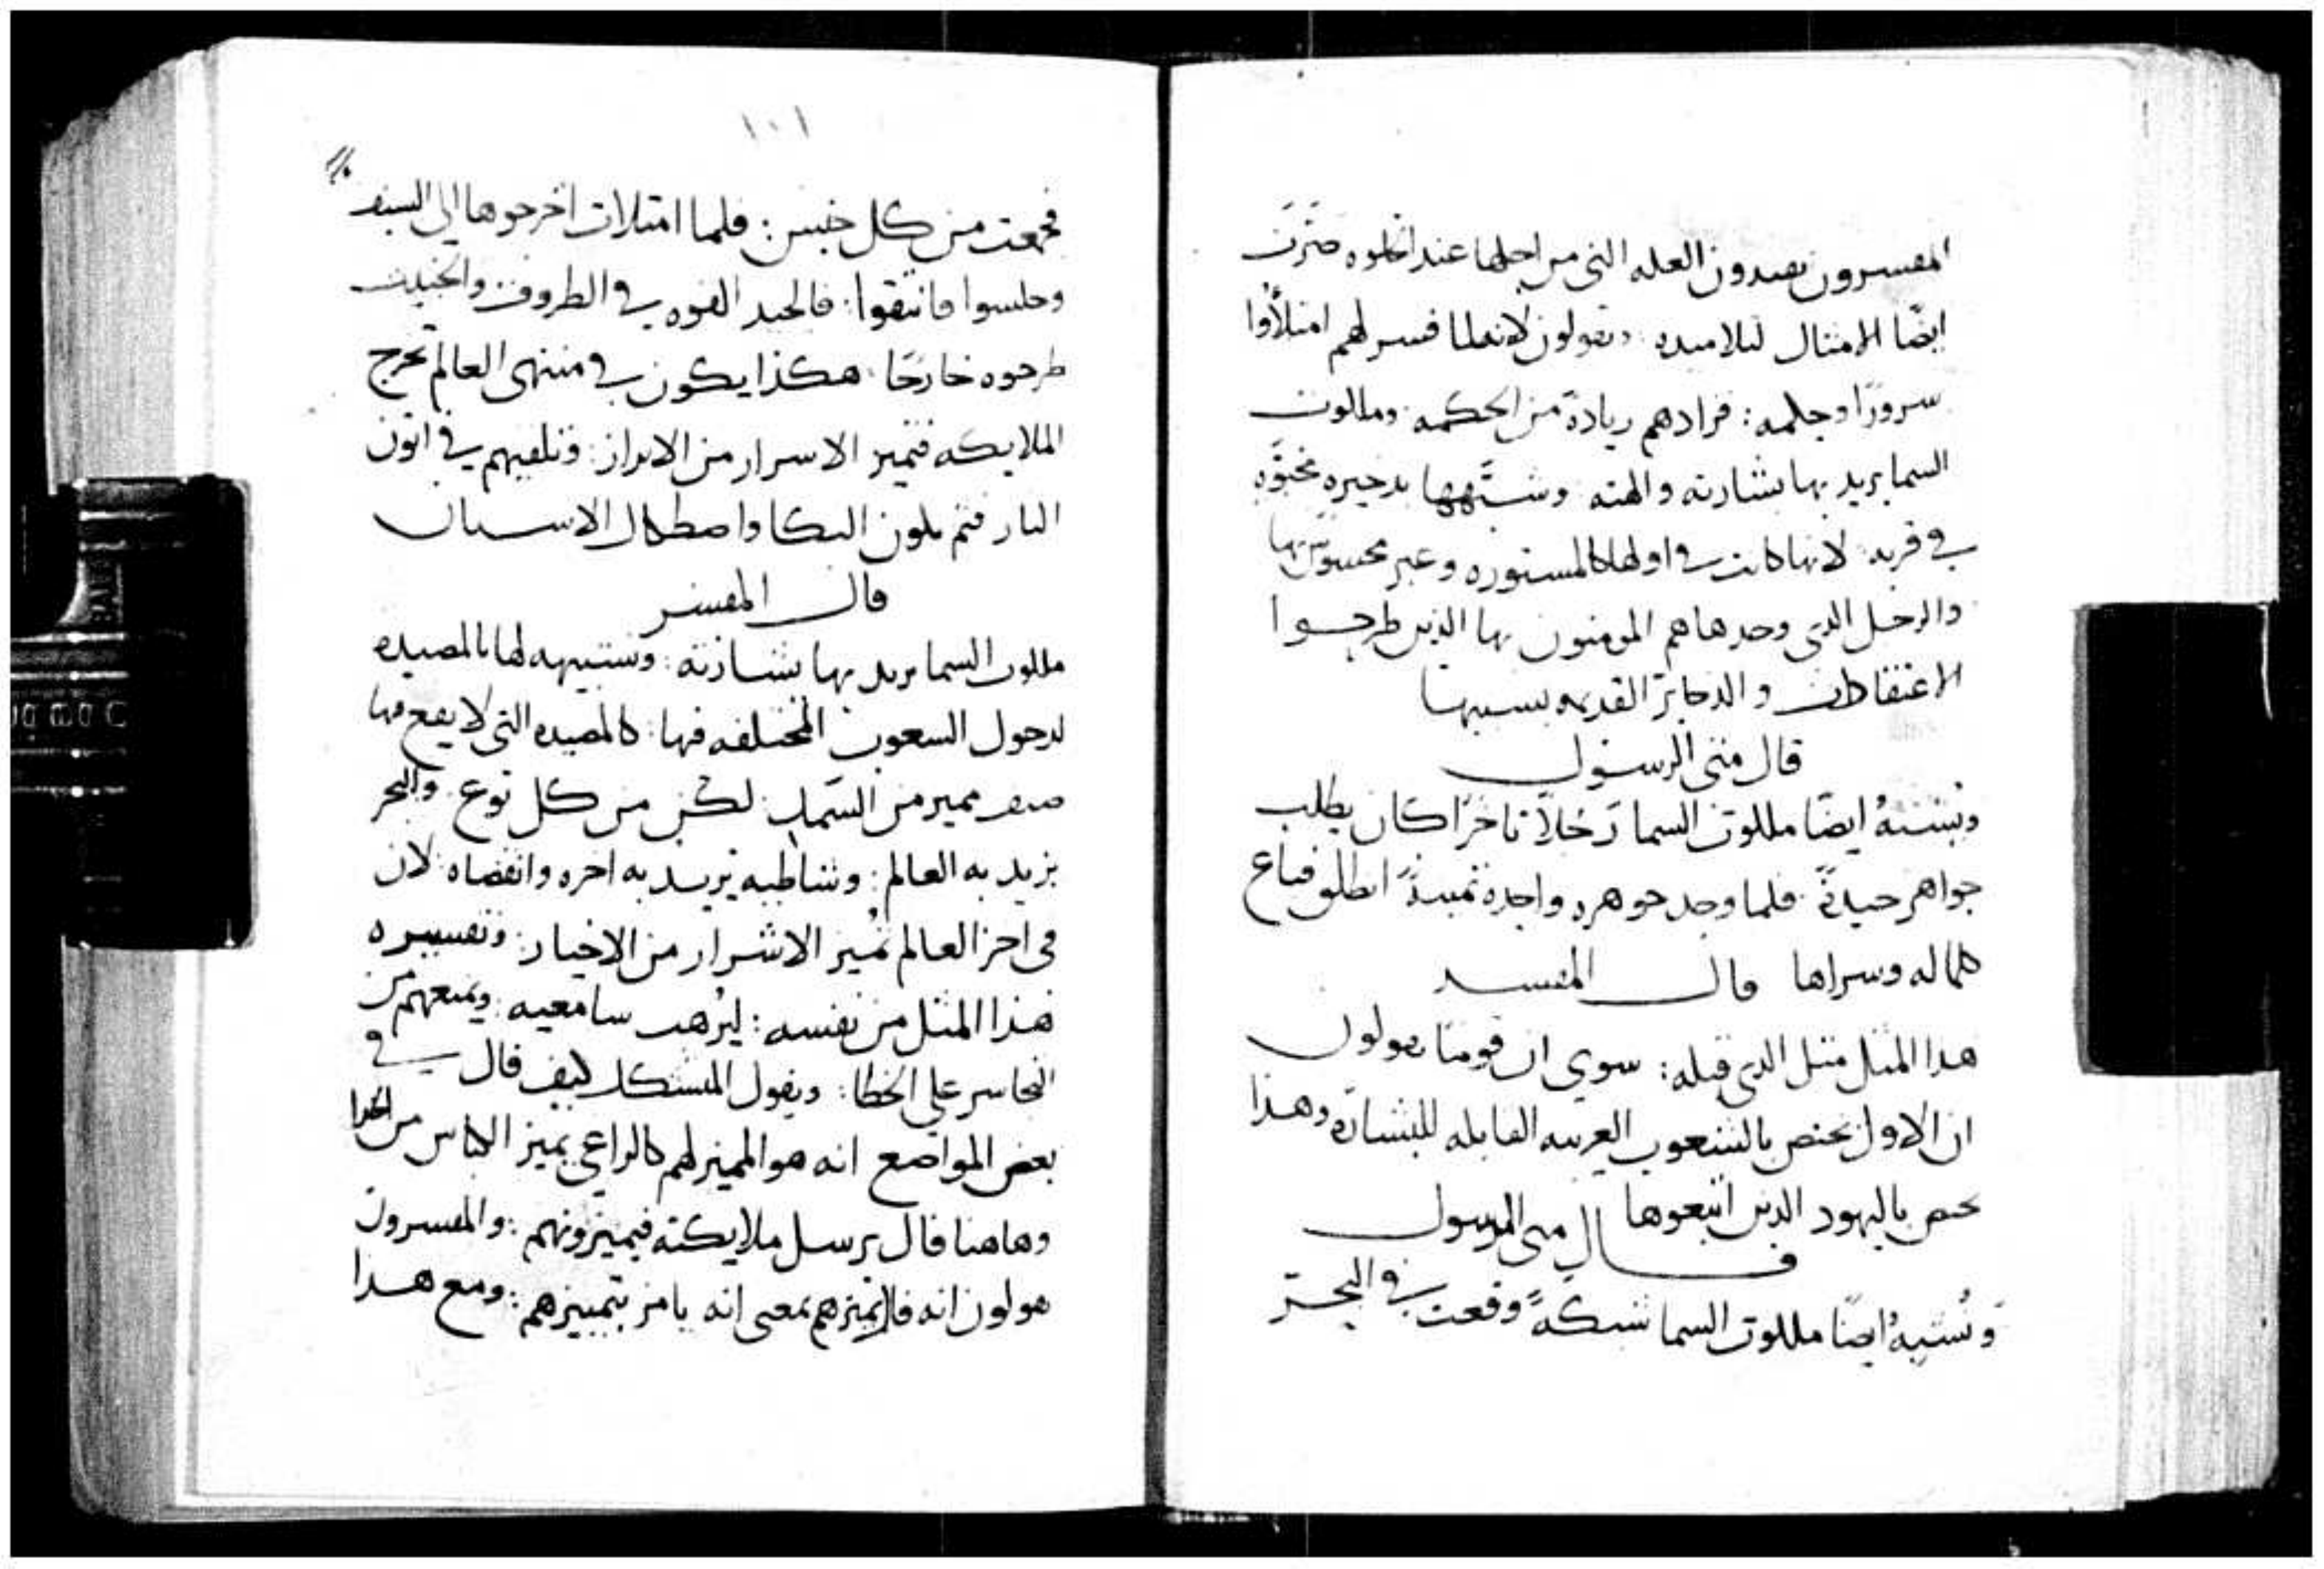 المفسرون يفيدون العله التى من اجلها عند الخلوه ضرب
ايضًا الامثال لتلاميده ويقولون لانه لما فسر لهم امتلأوا
سرورًا وحكمه : فزادهم زيادة من الحكمه وملكوت
السما يريد بها بشارته والهته وشبَّهها بدخيره مخبوَّه
في قريه لانها كانت في اولها كالمستوره وغير محسوس بها
والرجل الدى وجدها هم المومنون بها الذين طرحوا
الاعتقادات والدخاير القديمه بسببها
قال متى الرسول
وتشبهُ ايضًا ملكوت السما رَجُلاً تاجرًا كان يطلب
جواهر جيدةً فلما وجد جوهره واحده ثمينةً انطلق فباع
كلما له وسراها قال المفسر
هدا المثل مثل الدى قبله : سوى ان قومًا يقولون
ان الاول يختص بالشعوب الغريبه القابله للبشاره وهذا
يختص باليهود الدين اتبعوها قال متى الرسول
وَتُشبهُ ايضًا ملكوت السما شبكةً وقعت في البحر
١٠١
فجمعت من كل جنس : فلما امتلات اخرجوها الى
وجلسوا فانتقوا : فالجيد القوه في الظروف والخبيث
طرحوه خارجًا هكذا يكون في منتهى العالم تخرج
الملايكه فتميز الاسرار من الابرار : وتلقيهم في اتون
النار فثم يكون البكا واصطكاك الاسنان
قال المفسر
ملكوت السما يريد بها بشارته : وتشبيهه لها بالمصيده
لدخول الشعوب المختلفه فيها : كالمصيده التى لا يقع فيها
صنف مميز من السَّمك لكن من كل نوع والبحر
يريد به العالم : وشاطيه يريد به اخره وانقضاه لان
فى اخر العالم تُميز الاشرار من الاخيار : وتفسيره
هذا المثل من نفسه : ليُرهب سامعيه ويمنعهم من
التجاسر على الخطا : ويقول المتشكك كيف قال في
بعض المواضع انه هو المميز لهم كالراعي يميز الكباش من الجدا
وهاهنا قال يرسل ملايكته فيميزونهم : والمفسرون
يقولون انه قال يميزهم بمعنى انه يامر بتمييزهم : ومع هدا